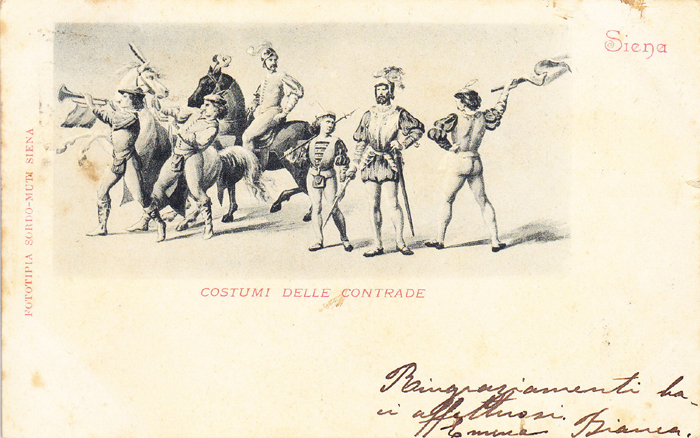 Siena
FOTOTIPIA SORDO-MUTI SIENA
COSTUMI DELLE CONTRADE
Ringraziamenti ba-
ci affettuosi.
Emma Bianca.